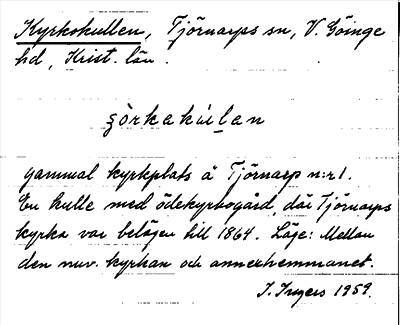 Kyrkokullen, Tjörnarps sn, V. Göinge
hd, Krist. län.
şòrkakúl̥an
gammal kyrkplats å Tjörnarp n:r 1.
En kulle med ödekyrkogård, där Tjörnarps
kyrka var belägen till 1864. Läge: Mellan
den nuv. kyrkan och annexhemmanet.
I. Ingers 1959.